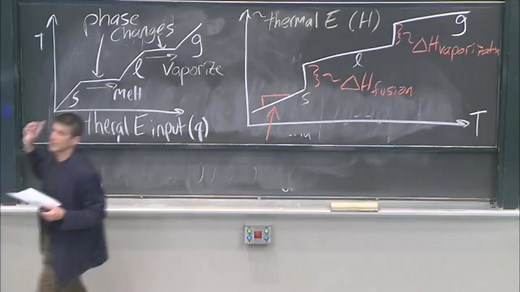 phase
changes
T
g
l
Vaporize
s
melt
thergal E input (q)
~thermal E (H)
g
~ΔHvaporization
l
~ΔHfusion
s
T